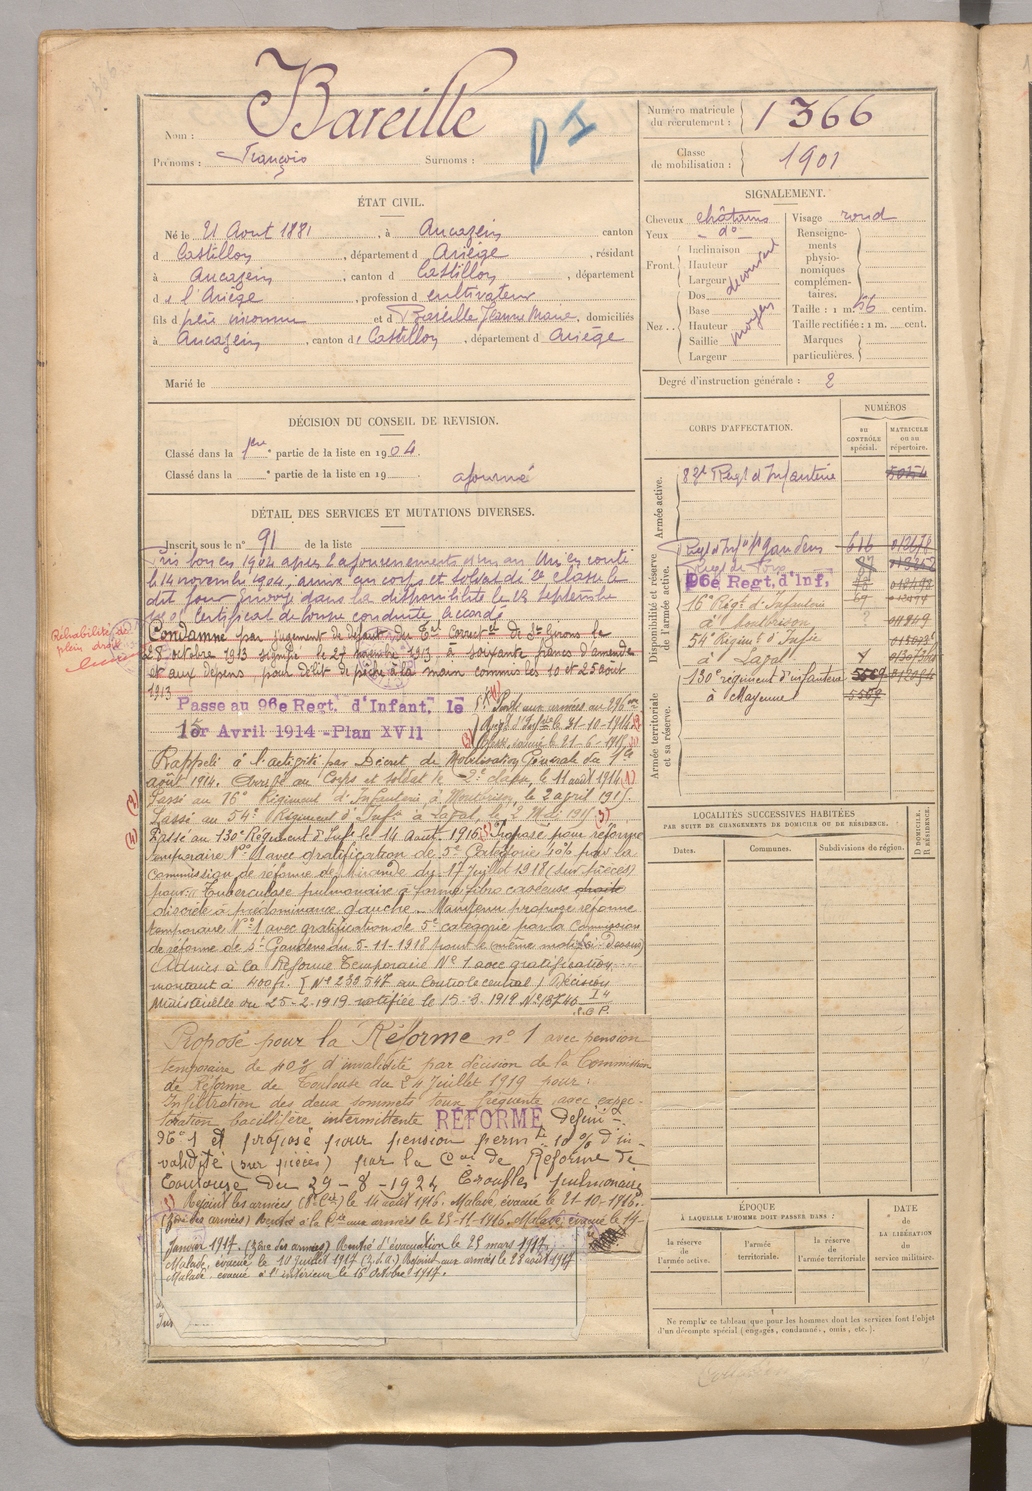 Bareille
Nom :
Prénoms : François Surnoms :
D I
Numéro matricule du recrutement : 1366
Classe de mobilisation : 1901
ÉTAT CIVIL.
Né le 21 Aout 1881, à Aucazein canton
d Castillon, département d Ariége, résidant
à Aucazein, canton d Castillon, département
d e l'Ariège, profession d cultivateur
fils d père inconnu et d Bareille Jeanne Marie, domiciliés
à Aucazein, canton de Castillon, département d Ariège
Marié le
DÉCISION DU CONSEIL DE REVISION.
Classé dans la 1ère partie de la liste en 1904.
Classé dans la e partie de la liste en 19 ajourné
DÉTAIL DES SERVICES ET MUTATIONS DIVERSES.
Inscrit sous le n° 91 de la liste
Pris bon en 1904 après l'ajournement d'un an
le 14 novembre 1904, arrivé au corps et soldat de 2e classe le
dit jour. Envoyé dans la disponibilité le 12 septembre
Certificat de bonne conduite accordé
Réhabilité de plein droit
Condamné par jugement de défaut du Tal Correctel de St Girons le
28 octobre 1913 signifié le 27 novembre 1913 à soixante francs d'amende
et aux dépens, pour délit de pêche à la main commis les 10 et 25 août
1913
Passe au 96e Regt. d'Infant. le
1er Avril 1914 - Plan XVII
Parti aux armées au 296e
Régt d'Infie le 31-10-1914
le 21-6-1915
Rappelé à l'activité par Décret de Mobilisation Générale du 1er
août 1914. Arrivé au Corps et soldat de 2e classe, le 11 août 1914 (1)
Passé au 16e Régiment d'Infanterie à Montbrison, le 2 avril 1915.
Passé au 54e Régiment d'Infie à Laval, le
Passé au 130e Régiment d'Infie le 14 Août 1916. Proposé pour réforme
temporaire N° 1 avec gratification de 5e Catégorie 10% par la
Commission de réforme de Mirande du 17 Juillet 1918 (sur pièces)
pour : Tuberculose pulmonaire à forme fibro caséeuse droite
discrète à prédominance gauche. Maintenu proposé réforme
temporaire N° 1 avec gratification de 5e catégorie par la Commission
de réforme de St Gaudens du 5-11-1918 pour le même motif (ci-dessus)
Admis à la Réforme Temporaire N° 1 avec gratification
montant à 400 fr. [N° 233.547 au Contrôle central] Décision
Ministérielle du 25-2-1919 notifiée le 15-3-1919
Proposé pour la Réforme n° 1 avec pension
temporaire de 40% d'invalidité par décision de la Commission
de Réforme de Toulouse du 24 Juillet 1919 pour :
Infiltration des deux sommets toux fréquente avec expec-
toration bacillifère intermittente RÉFORMÉ Défini
N° 1 et proposé pour pension permte 10% d'in-
validité (sur pièces) par la Con de Réforme de
Toulouse du 29-8-1924 Troubles pulmonaires
Rejoint les armées le 14 août 1916. Malade, évacué le 21-10-1916.
(Zône des armées) Rentré à la Cie aux armées le 25-11-1916. Malade, évacué le 14
Janvier 1917. (Zône des armées) Rentré d'évacuation le 25 mars 1917,
Malade, évacué, le 10 juillet 1917 (Z.d.A) Rejoint aux armées le 28 août 1917
Malade, évacué à l'intérieur le 15 Octobre 1917.
SIGNALEMENT.
Cheveux châtains
Yeux d°
Front Inclinaison
Hauteur
Largeur
découvert
Nez Dos
Base
Hauteur
Saillie
Largeur
moyen
Visage rond
Renseignements physionomiques complémentaires.
Taille : 1 m. 56 centim.
Taille rectifiée : 1 m. cent.
Marques particulières.
Degré d'instruction générale : 2
CORPS D'AFFECTATION.
NUMÉROS
au CONTRÔLE spécial.
MATRICULE ou au répertoire.
Armée active.
83e Regt d'Infanterie
Disponibilité et réserve de l'armée active.
Regt d'Infie St Gaudens 616
96e Regt. d'Inf.
16e Régt d'Infanterie
à Montbrison
54e Régiment d'Infie
à Laval
130e régiment d'infanterie 5569
à Mayenne 5569
Armée territoriale et sa réserve.
LOCALITÉS SUCCESSIVES HABITÉES
PAR SUITE DE CHANGEMENTS DE DOMICILE OU DE RÉSIDENCE.
D DOMICILE. R RÉSIDENCE.
Dates. Communes. Subdivisions de région.
ÉPOQUE
À LAQUELLE L'HOMME DOIT PASSER DANS :
DATE de LA LIBÉRATION du service militaire.
la réserve de l'armée active.
l'armée territoriale.
la réserve de l'armée territoriale
Ne remplir ce tableau que pour les hommes dont les services font l'objet
d'un décompte spécial (engagés, condamnés, omis, etc.).